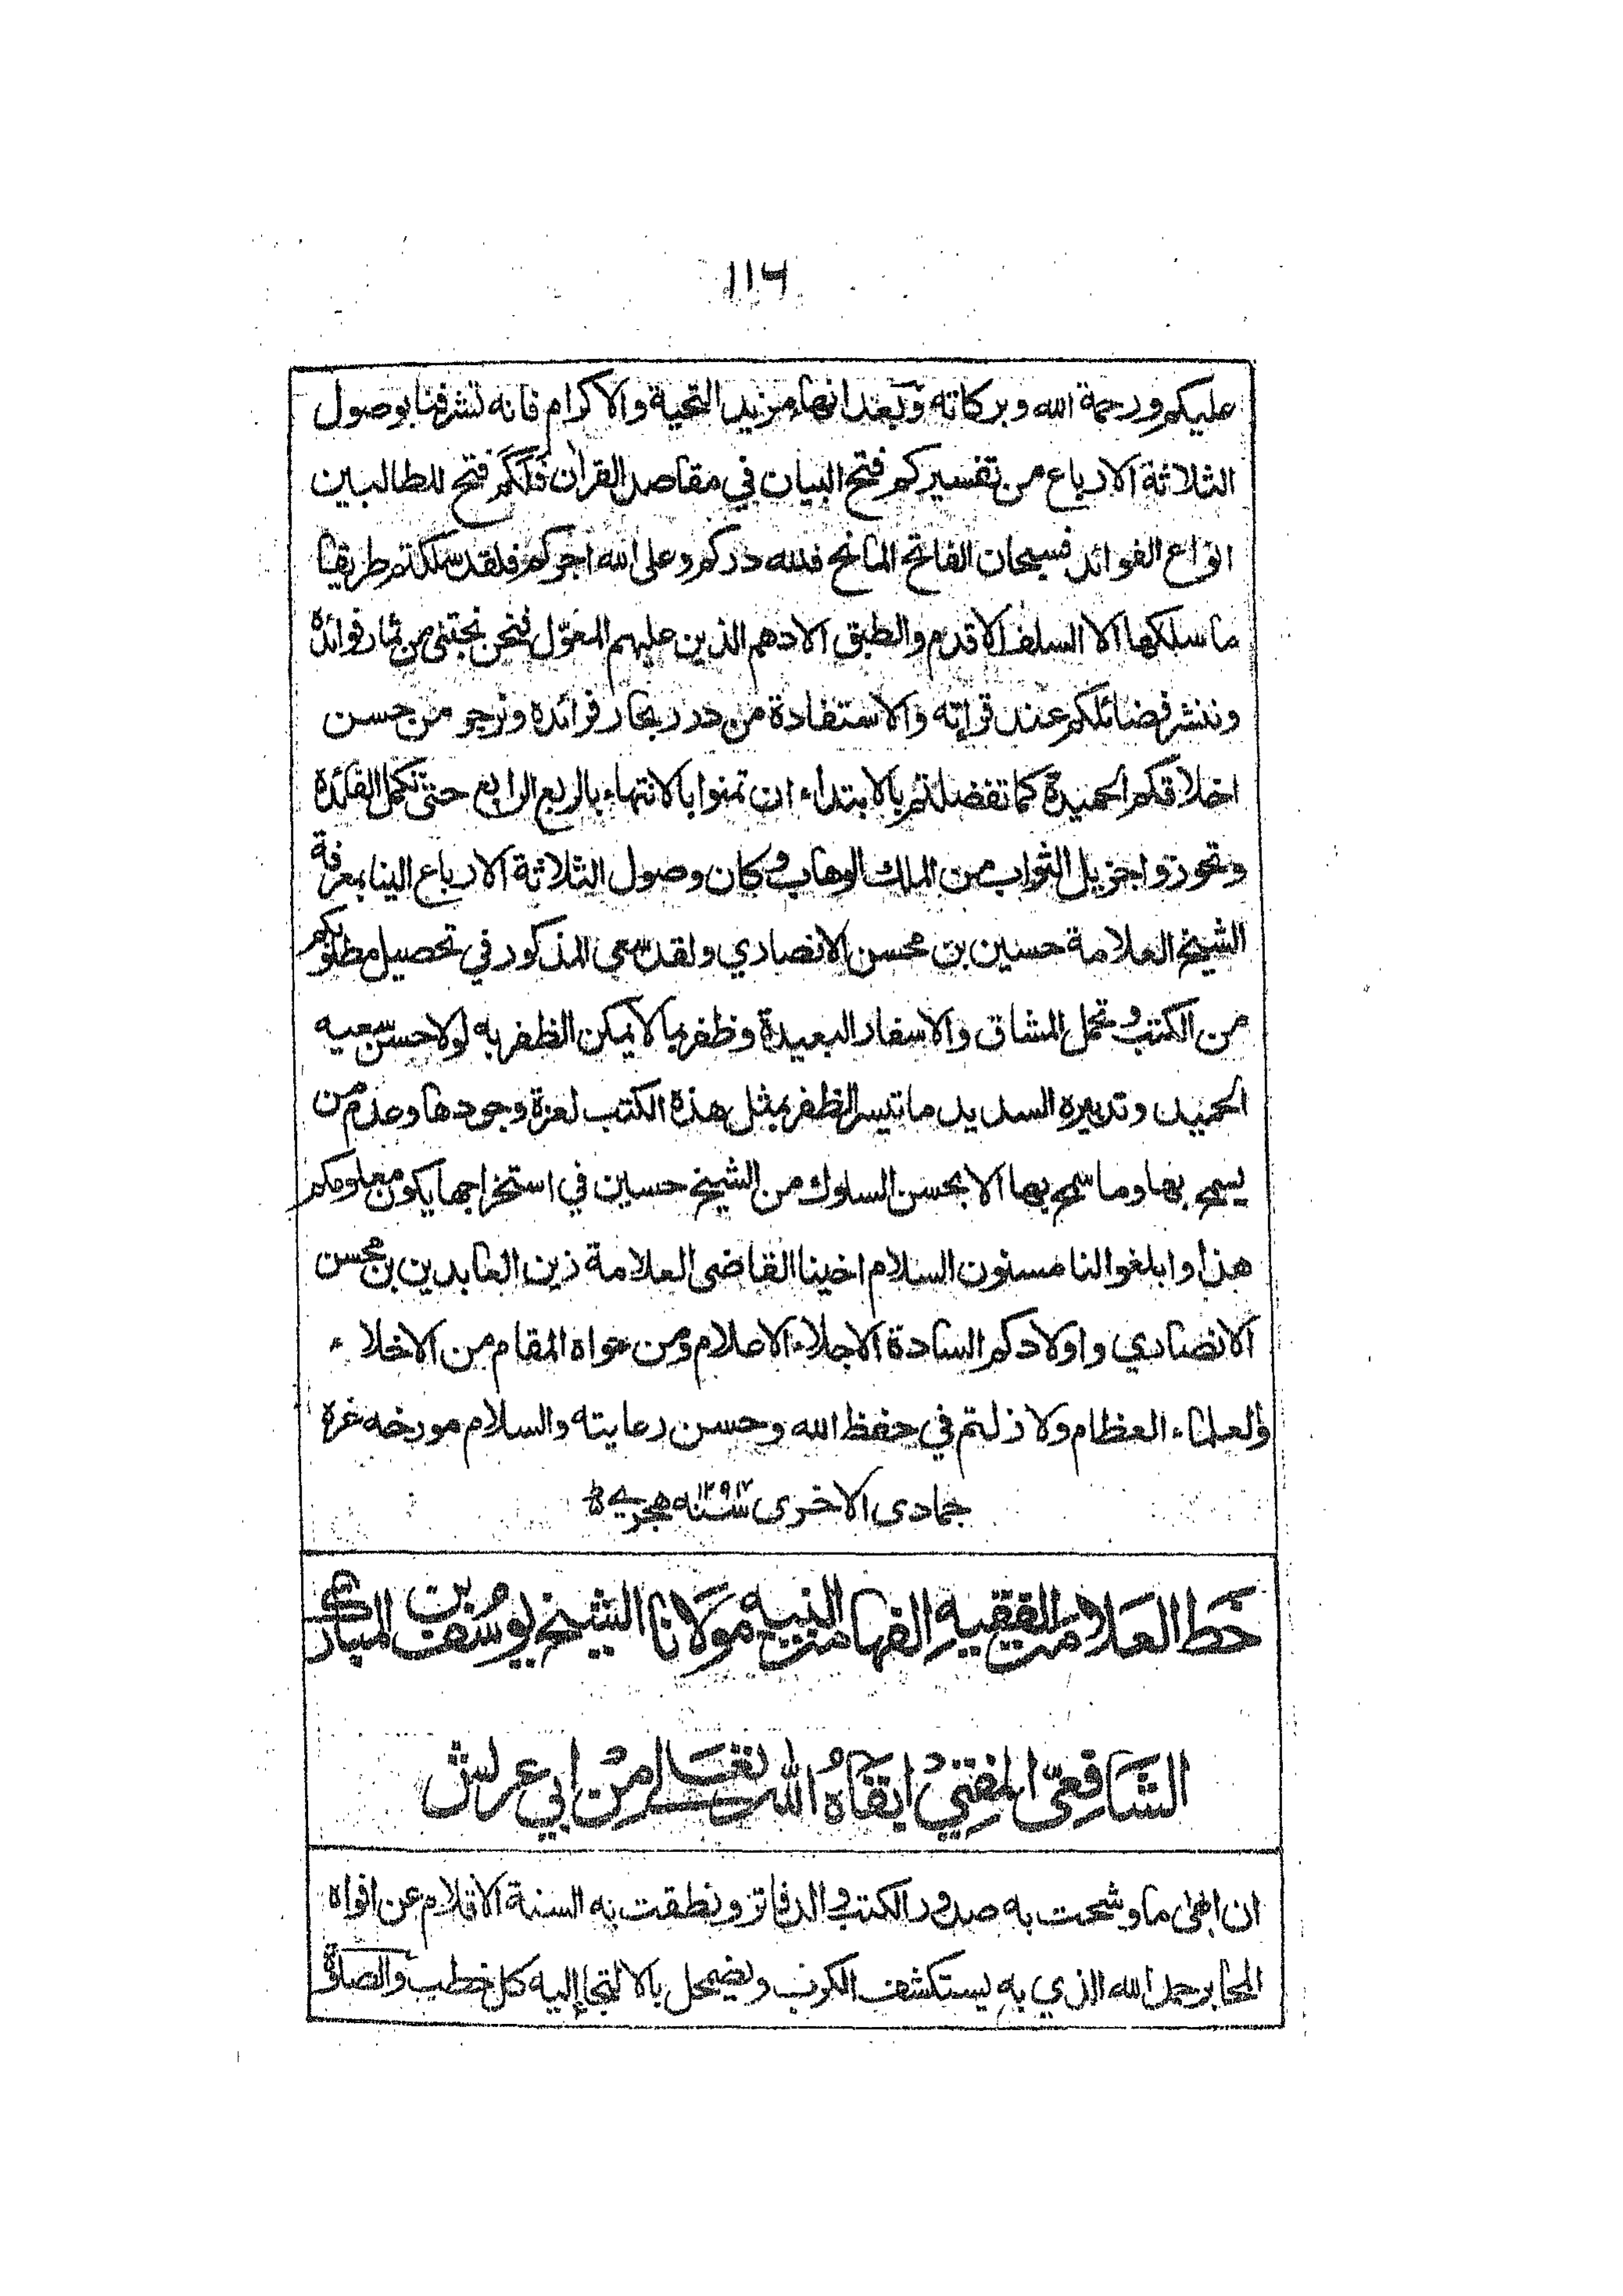 ١١٦
عليكم ورحمة الله وبركاته وبعد انهاء مزيد التحية والاكرام فانه تشرفنا بوصول
الثلاثة الارباع من تفسيركم فتح البيان في مقاصد القرآن فلكم فتح للطالبين
انواع الفوائد فسبحان الفاتح المانح فلله دركم وعلى الله اجركم فلقد سلكتم طريقا
ما سلكها الا السلف الاقدم والطبق الادهم الذين عليهم المعوّل فنحن نجتني من ثمار فوائده
وننشر فضائلكم عند قراءته والاستفادة من درر بحار فرائده ونرجو من حسن
اخلاقكم الحميدة كما تفضلتم بالابتداء ان تمنوا بالانتهاء بالربع الرابع حتى تكمل الفائدة
وتحوزوا جزيل الثواب من الملك الوهاب وكان وصول الثلاثة الارباع الينا بمعرفة
الشيخ العلامة حسين بن محسن الانصاري ولقد سعى المذكور في تحصيل مطلوبكم
من الكتب وتحمل المشاق والاسفار البعيدة وظفر بما لا يمكن الظفر به لولا حسن سعيه
الحميد وتدبيره السديد ما تيسر الظفر بمثل هذه الكتب لعزة وجودها وعدم من
يسمح بها وما سمح بها الا بحسن السلوك من الشيخ حسين في استخراجها يكون معلومكم
هذا وابلغوا لنا مسنون السلام اخينا القاضى العلامة زين العابدين بن محسن
الانصاري واولادكم السادة الاجلاء الاعلام ومن حواه المقام من الاخلاء
والعلماء العظام ولا زلتم في حفظ الله وحسن رعايته والسلام مورخه غرة
جمادى الاخرى سنه ١٢٩٢ هجريه
خط العلامة الفقيه الفهامة النبيه مولانا الشيخ يوسف بن المبارك
الشافعي المفتي ابقاه الله تعالى من ابي عريش
ان ابهى ما وشحت به صدور الكتب والدفاتر ونطقت به السنة الاقلام عن افواه
المحابر حمد الله الذي به يستكشف الكرب ويضمحل بالالتجا اليه كل خطب والصلوة